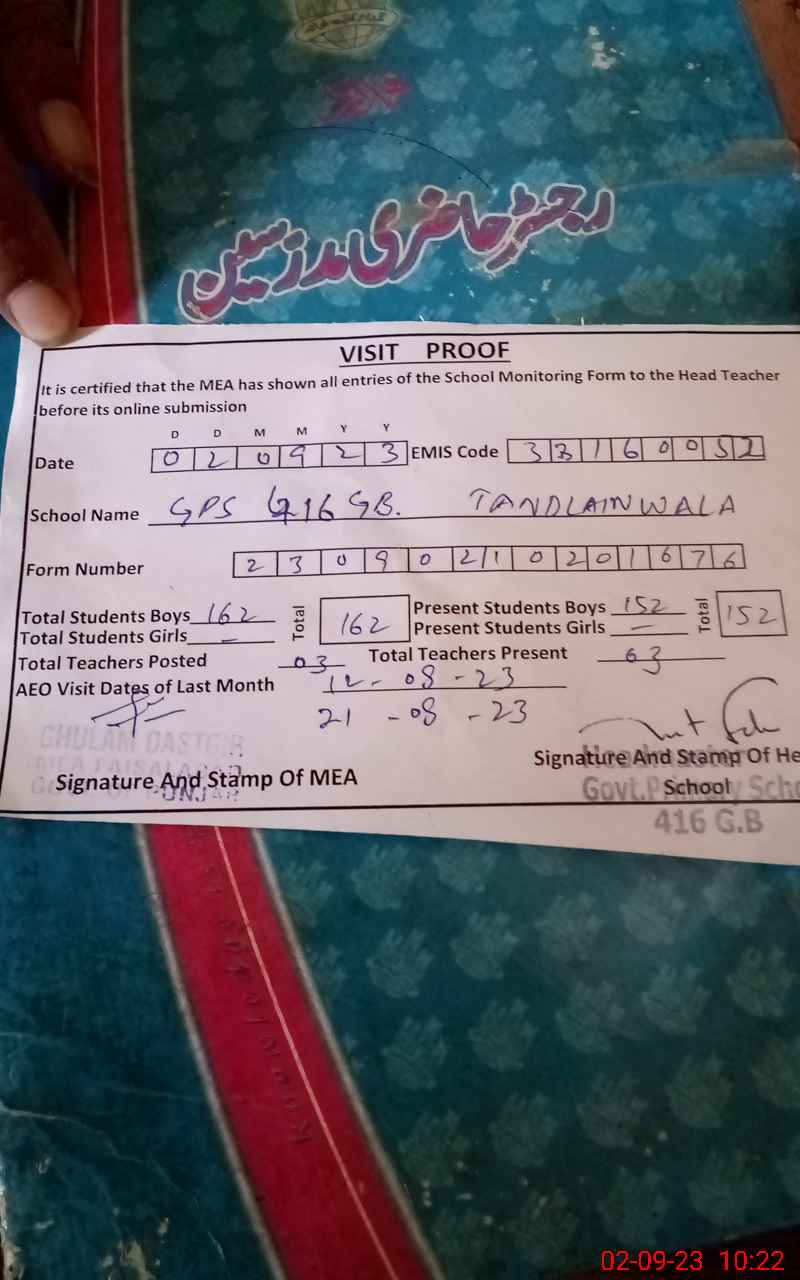 رجسٹر حاضری مدرسین
VISIT PROOF
It is certified that the MEA has shown all entries of the School Monitoring Form to the Head Teacher
before its online submission
D D M M Y Y
Date 0 2 0 9 2 3 EMIS Code 3 3 1 6 0 0 5 2
School Name GPS 416 GB. TANDLAINWALA
Form Number 2 3 0 9 0 2 1 0 2 0 1 6 7 6
Total Students Boys 162 Total 162 Present Students Boys 152 Total 152
Total Students Girls — Present Students Girls —
Total Teachers Posted 03 Total Teachers Present 03
AEO Visit Dates of Last Month 12-08-23
21-08-23
GHULAM DASTGIR
MEA FAISALABAD
Signature And Stamp Of MEA
Signature And Stamp Of He
School
Govt. Primary Scho
416 G.B
02-09-23 10:22